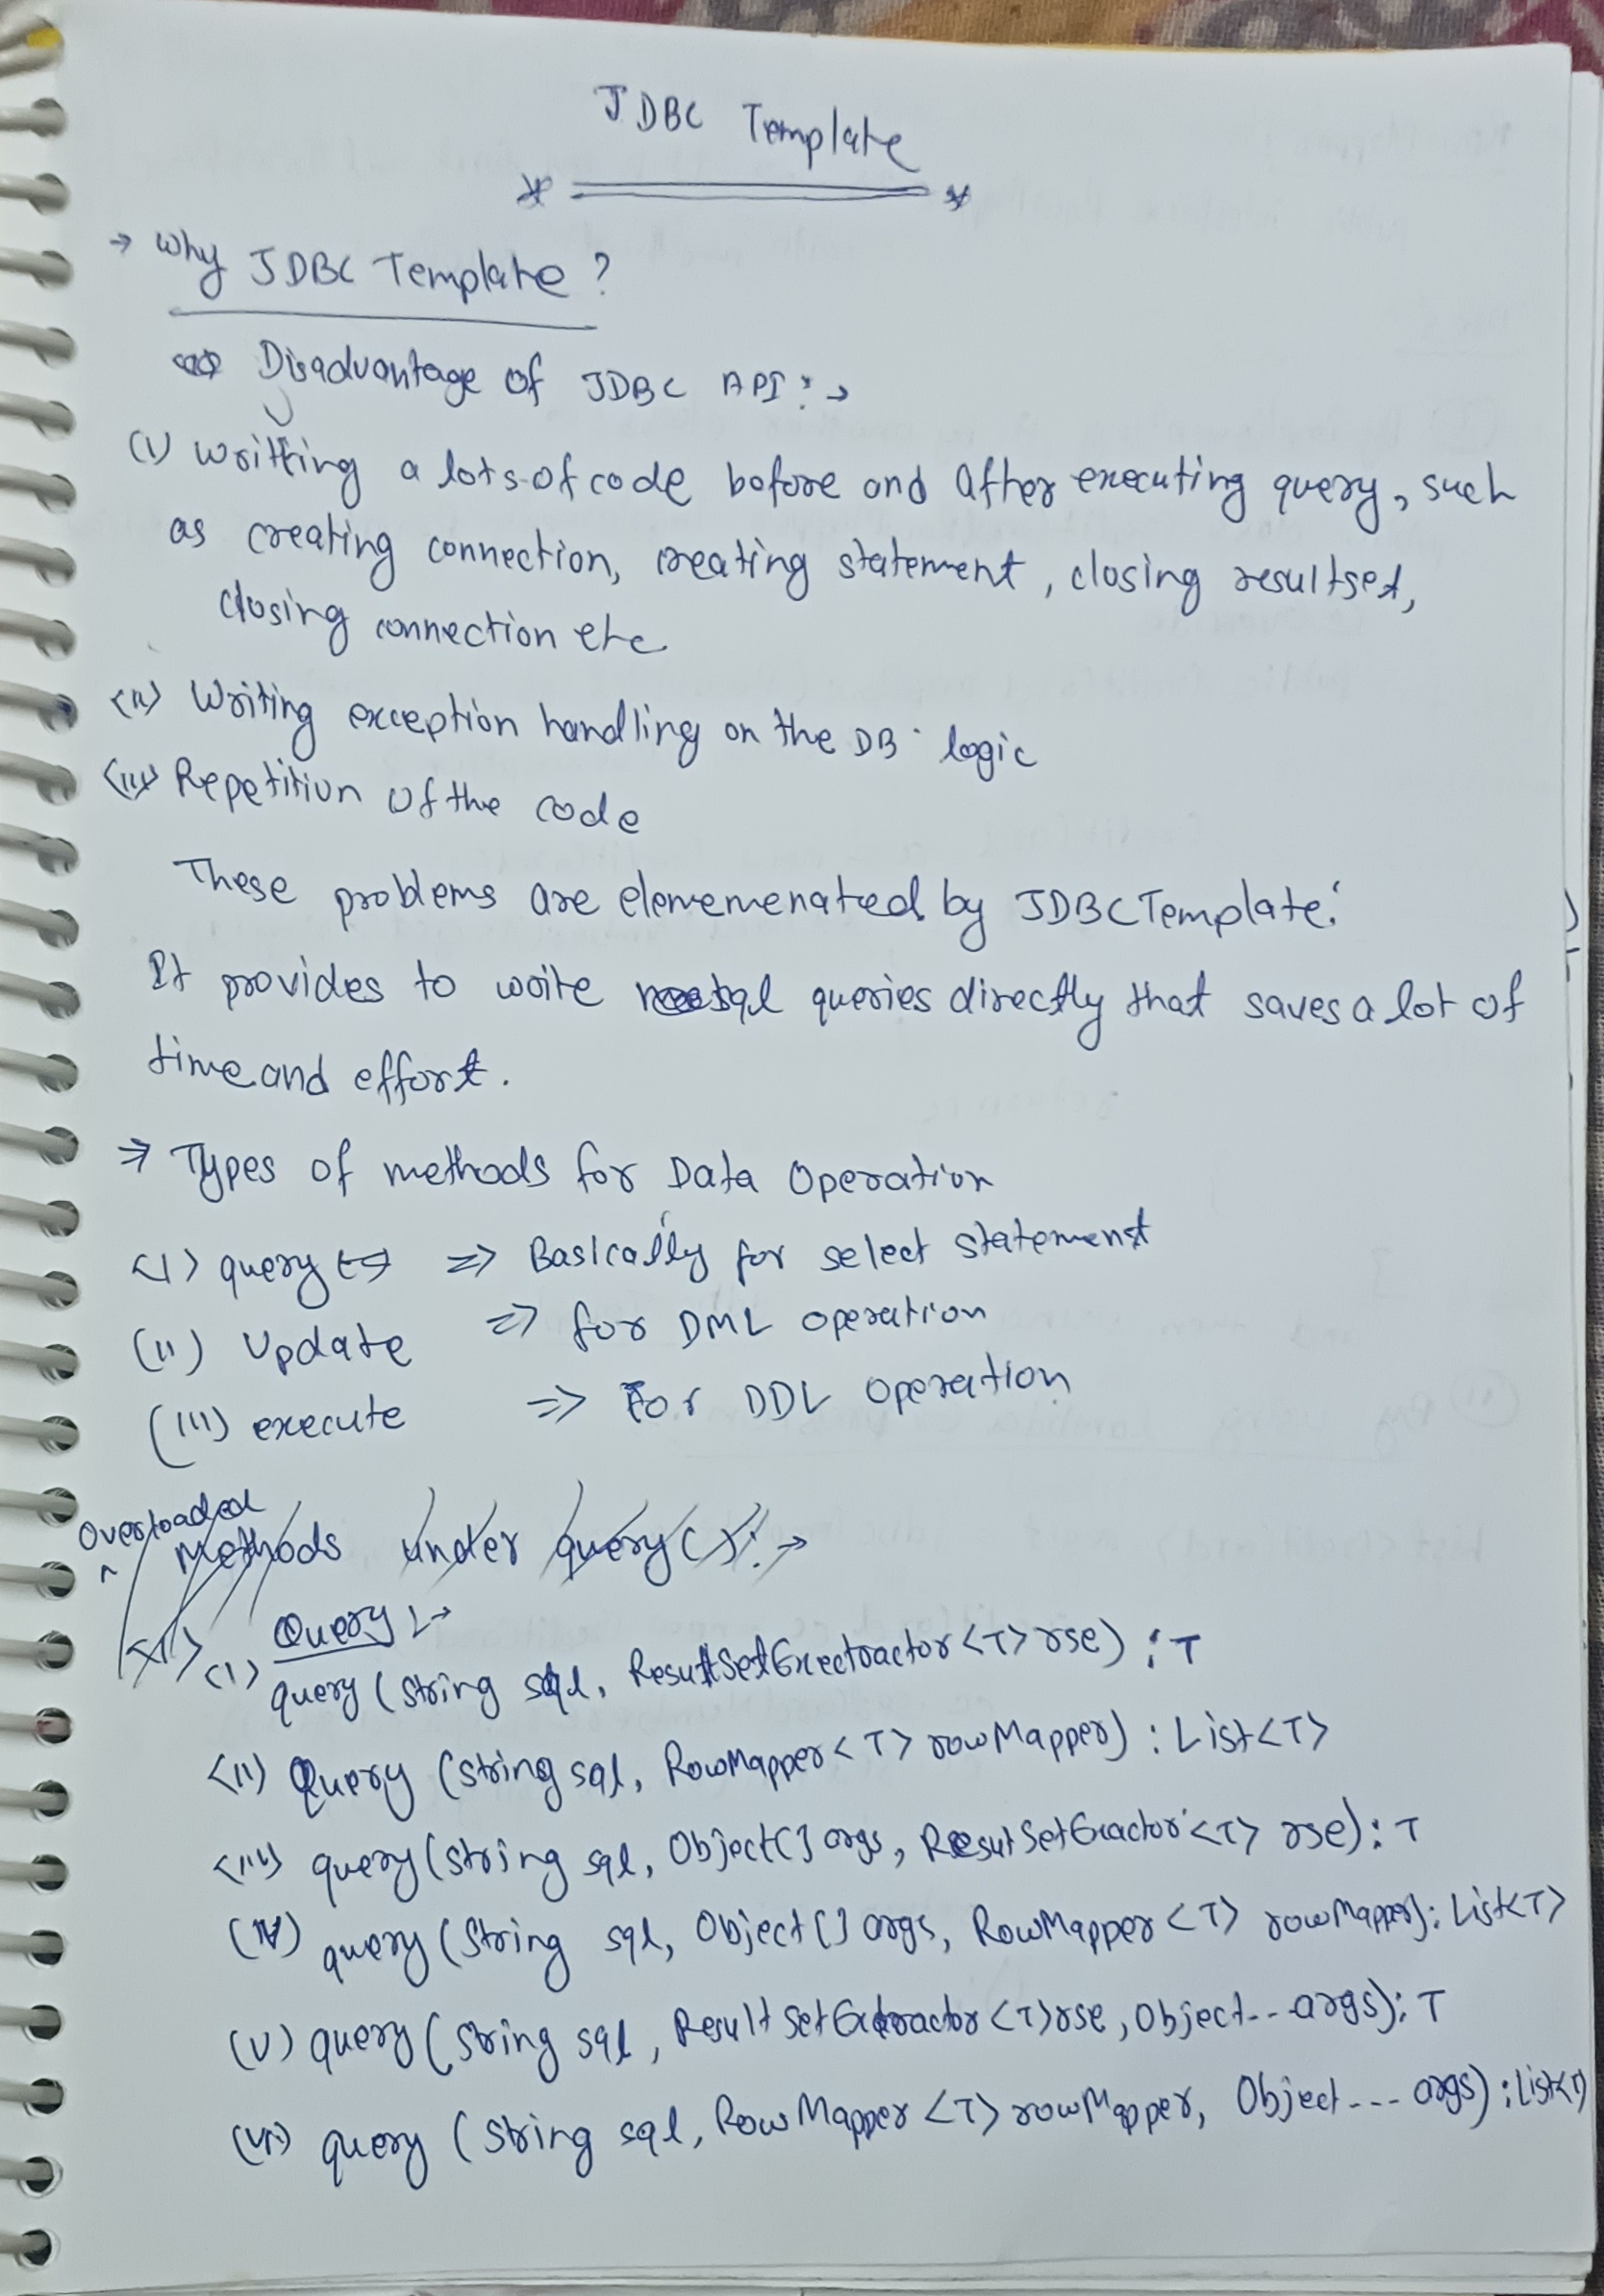 JDBC Template
→ Why JDBC Template?
Disadvantage of JDBC API :→
(i) Writting a lots of code before and After executing query, such
as creating connection, creating statement, closing resultset,
closing connection etc
(ii) Writing exception handling on the DB logic
(iii) Repetition of the code
These problems are elememenated by JDBCTemplate.
It provides to write sql queries directly that saves a lot of
time and effort.
⇒ Types of methods for Data Operation
(i) query ⇒ Basically for select statement
(ii) Update ⇒ for DML operation
(iii) execute ⇒ For DDL operation
Overloaded
Methods under query():→
Query :→
(i) query (String sql, ResultSetExectractor<T> rse) : T
(ii) Query (String sql, RowMapper<T> rowMapper) : List<T>
(iii) query (String sql, Object[] args, ResutSetExactor<T> rse) : T
(iv) query (String sql, Object[] args, RowMapper<T> rowMapper) : List<T>
(v) query (String sql, ResultSetExtractor<T> rse, Object... args) : T
(vi) query (String sql, RowMapper<T> rowMapper, Object.... args) : List<T>